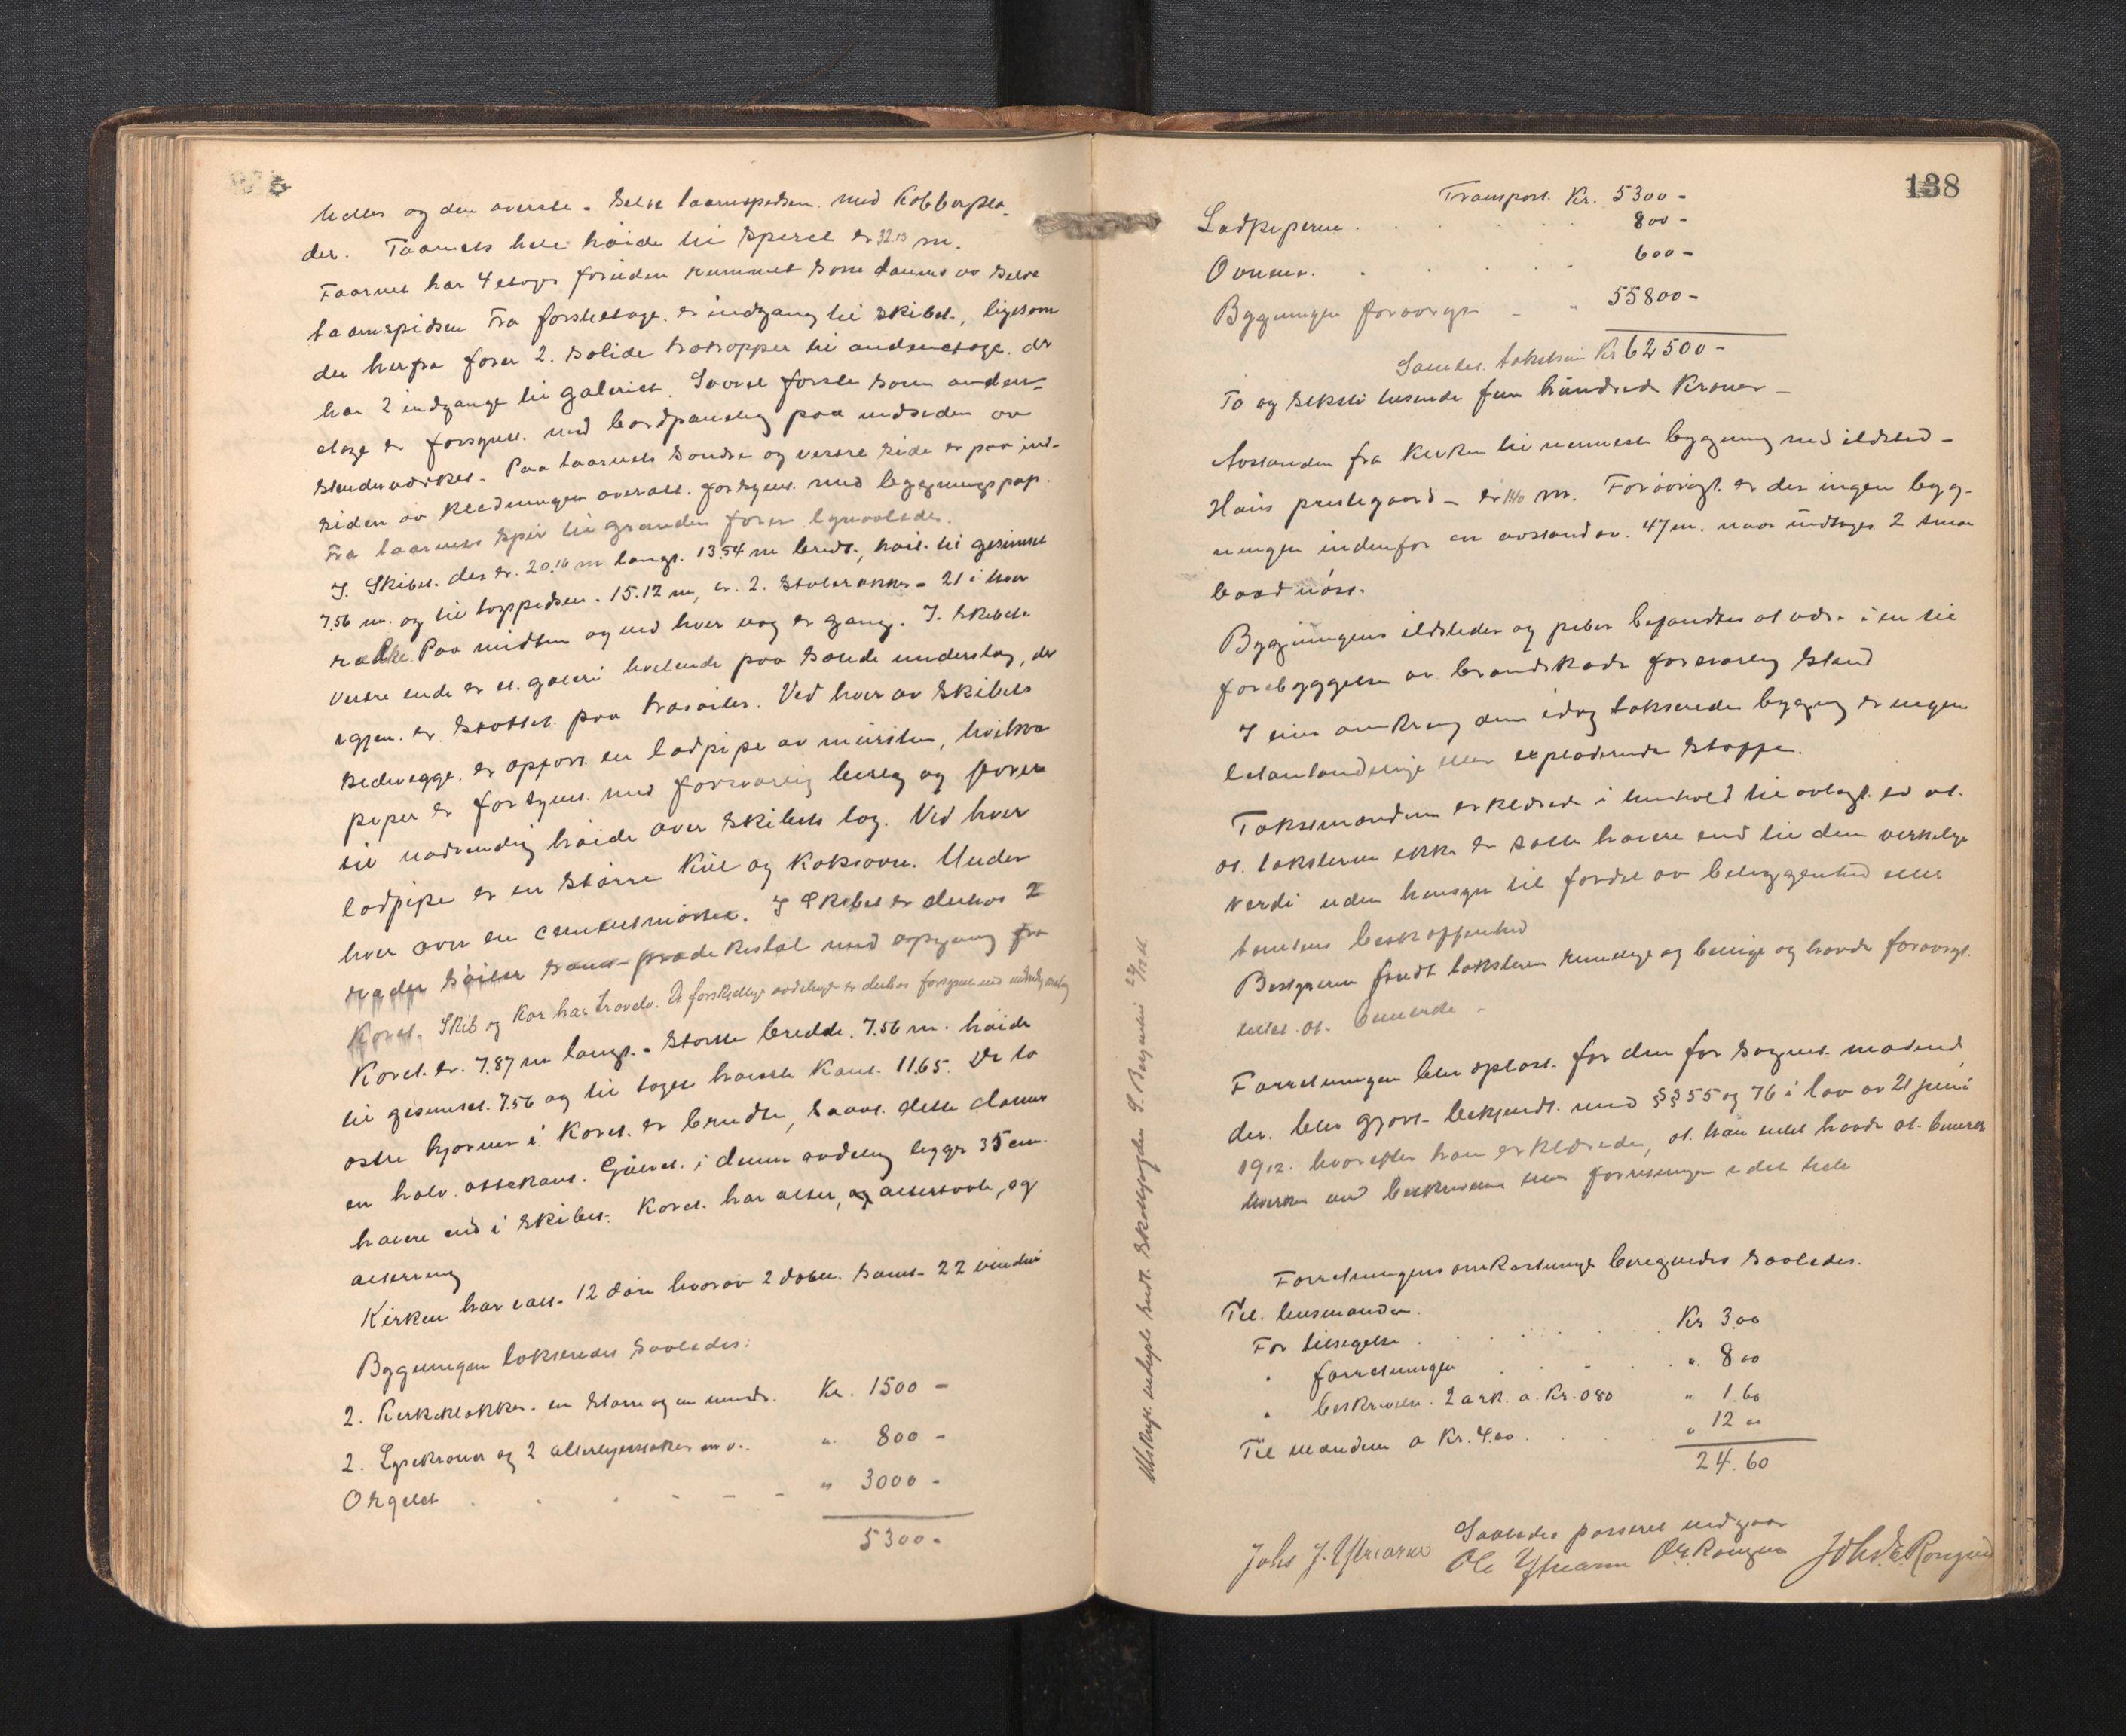 heller og den øverste - Selve taarnspidsen med Kobberpla-
der. Taarnets hele høide til spiret er 32.13 m.
Taarnet har 4 etager foruden rummet som dannes av selve
taarnspidsen Fra første etage er indgang til skibet, ligesom
der herfra fører 2 solide trætrapper til anden etage. der
har 2 indgange til galeriet. Saavel første som anden-
etage er forsynet med bordpaneling paa indsiden av
stenderverket. Paa taarnets søndre og vestre side er paa ind-
siden av klædningen overalt forsynet med bygningspap.
Fra taarnets spir til grunden fører lynavleder.
I Skibet der er 20.16 m langt. 13.54 m bredt, høit til gesimset
7.56 m. og til tagspidsen 15.12 m, er 2 stolerækker - 21 i hver
række. Paa midten og ved hver væg er gang. I skibets
vestre ende er et galeri hvilende paa solide understag, der
igjen er støttet paa træsøiler. Ved hver av skibets
sidevægge er opført en ladpipe av mursten, hvilke
piper er forsynet med forsvarlig beslag og fører
til nødvendig høide over skibets tag. Ved hver
ladpipe er en større Kul og Koksovn. Under
hver ovn en cementmørtel. I Skibet er derhos 2
rader søiler samt prædikestol med opgang fra
Koret. Skib og Kor har trævelv. De forskjellige avdelinger er derhos forsynet med indvendig maling
Koret er 7.87 m langt. - Største bredde 7.56 m. høide
til gesimset 7.56 og til tagets høieste Kant 11.65. De to
østre hjørner i Koret er brudte, saavel dette danner
en halv ottekant. Gulvet i denne avdeling ligger 35 cm.
høiere end i skibet. Koret har alter, og altertavle, og
alterring
Kirken har ialt 12 døre hvorav 2 doble. samt 22 vinduer
Bygningen takseredes saaledes:
2. Kirkeklokker. en større og en mindre. Kr. 1500 -
2. Lysekroner og 2 alterlysestaker m. v. " 800 -
Orgelet . . . - - - " 3000 -
5300 -
138
Transport. Kr. 5300 -
Ladpiperne . . . 800 -
Ovnene . . . . 600 -
Bygningen forøvrigt - " 55800 -
Samlet takstsum Kr 62500 -
To og seksti tusende fem hundrede Kroner -
Avstanden fra Kirken til nærmeste bygning med ildsted -
Haus prestegaard - er 140 m. Forøvrigt er der ingen byg-
ninger indenfor en avstand av 47 m. naar undtages 2 smaa
baadnøst.
Bygningens ildsteder og piber befandtes at være i en til
forebyggelse av brandskade forsvarlig stand
I eller omkring den idag takserede bygning er ingen
letantændelige eller exploderende stoffer.
Taksmændene erklærede i henhold til avlagt ed at
at taksterne ikke er satte høiere end til den virkelige
verdi uden hensyn til fordel av beliggenhed eller
tomtens beskaffenhed
Bestyreren fandt taksterne rimelige og billige og havde forøvrigt
intet at bemerke -
Forretningen blev oplæst for den for sognet mødende
der blev gjort bekjendt med §§ 55 og 76 i lov av 21 juni
1912. hvorefter han erklærede, at han intet havde at bemerke
hverken ved beskrivelsen eller forretningen i det hele
Forretningens omkostninger beregnedes saaledes.
Til lensmanden.
For tilsigelse . . . . . Kr 3.00
" forretningen . . . . " 8 00
" beskrivelse. 2 ark. a. Kr. 0 80 " 1.60
Til mændene a Kr. 4.00 . . . " 12 00
24.60
Saaledes passeret vedgaar
Johs J. Ystrearne Ole Ystrearne O. E. Romyren Johs E. Romyren
Utskrift utlagt sendt. Skattefogden S. Bergenhus